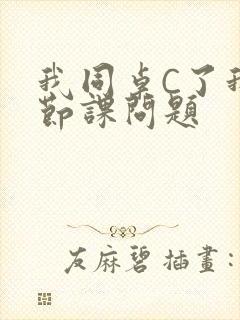 我同卓C了我
節課問題
友麻碧 插畫: